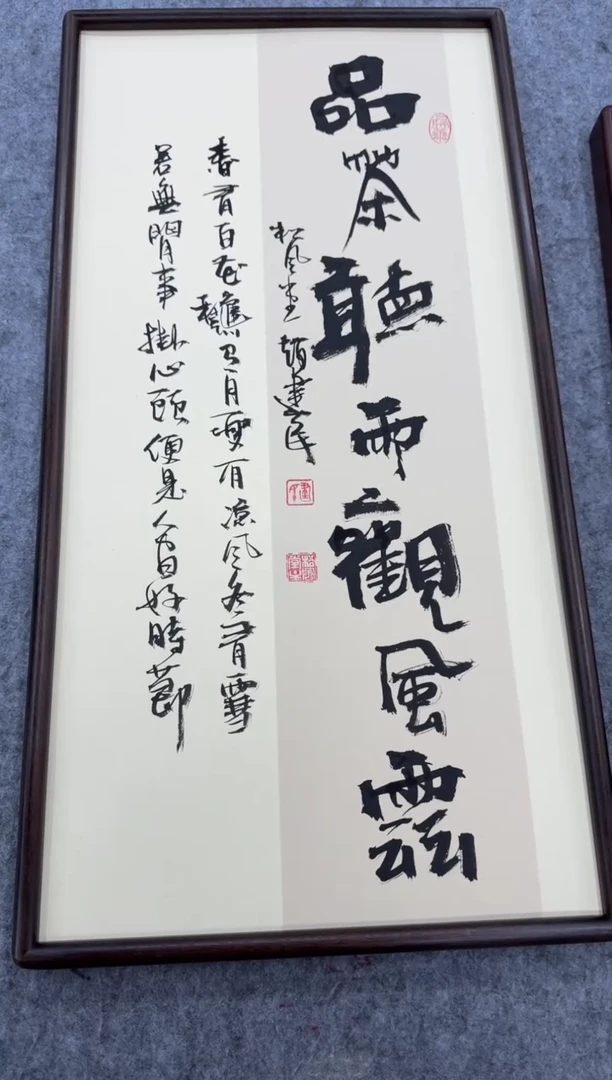 品茶聽雨二觀風雲
松風堂 趙建民
春有百花穐有月夏有涼風冬有雪
若無閒事掛心頭便是人間好時節